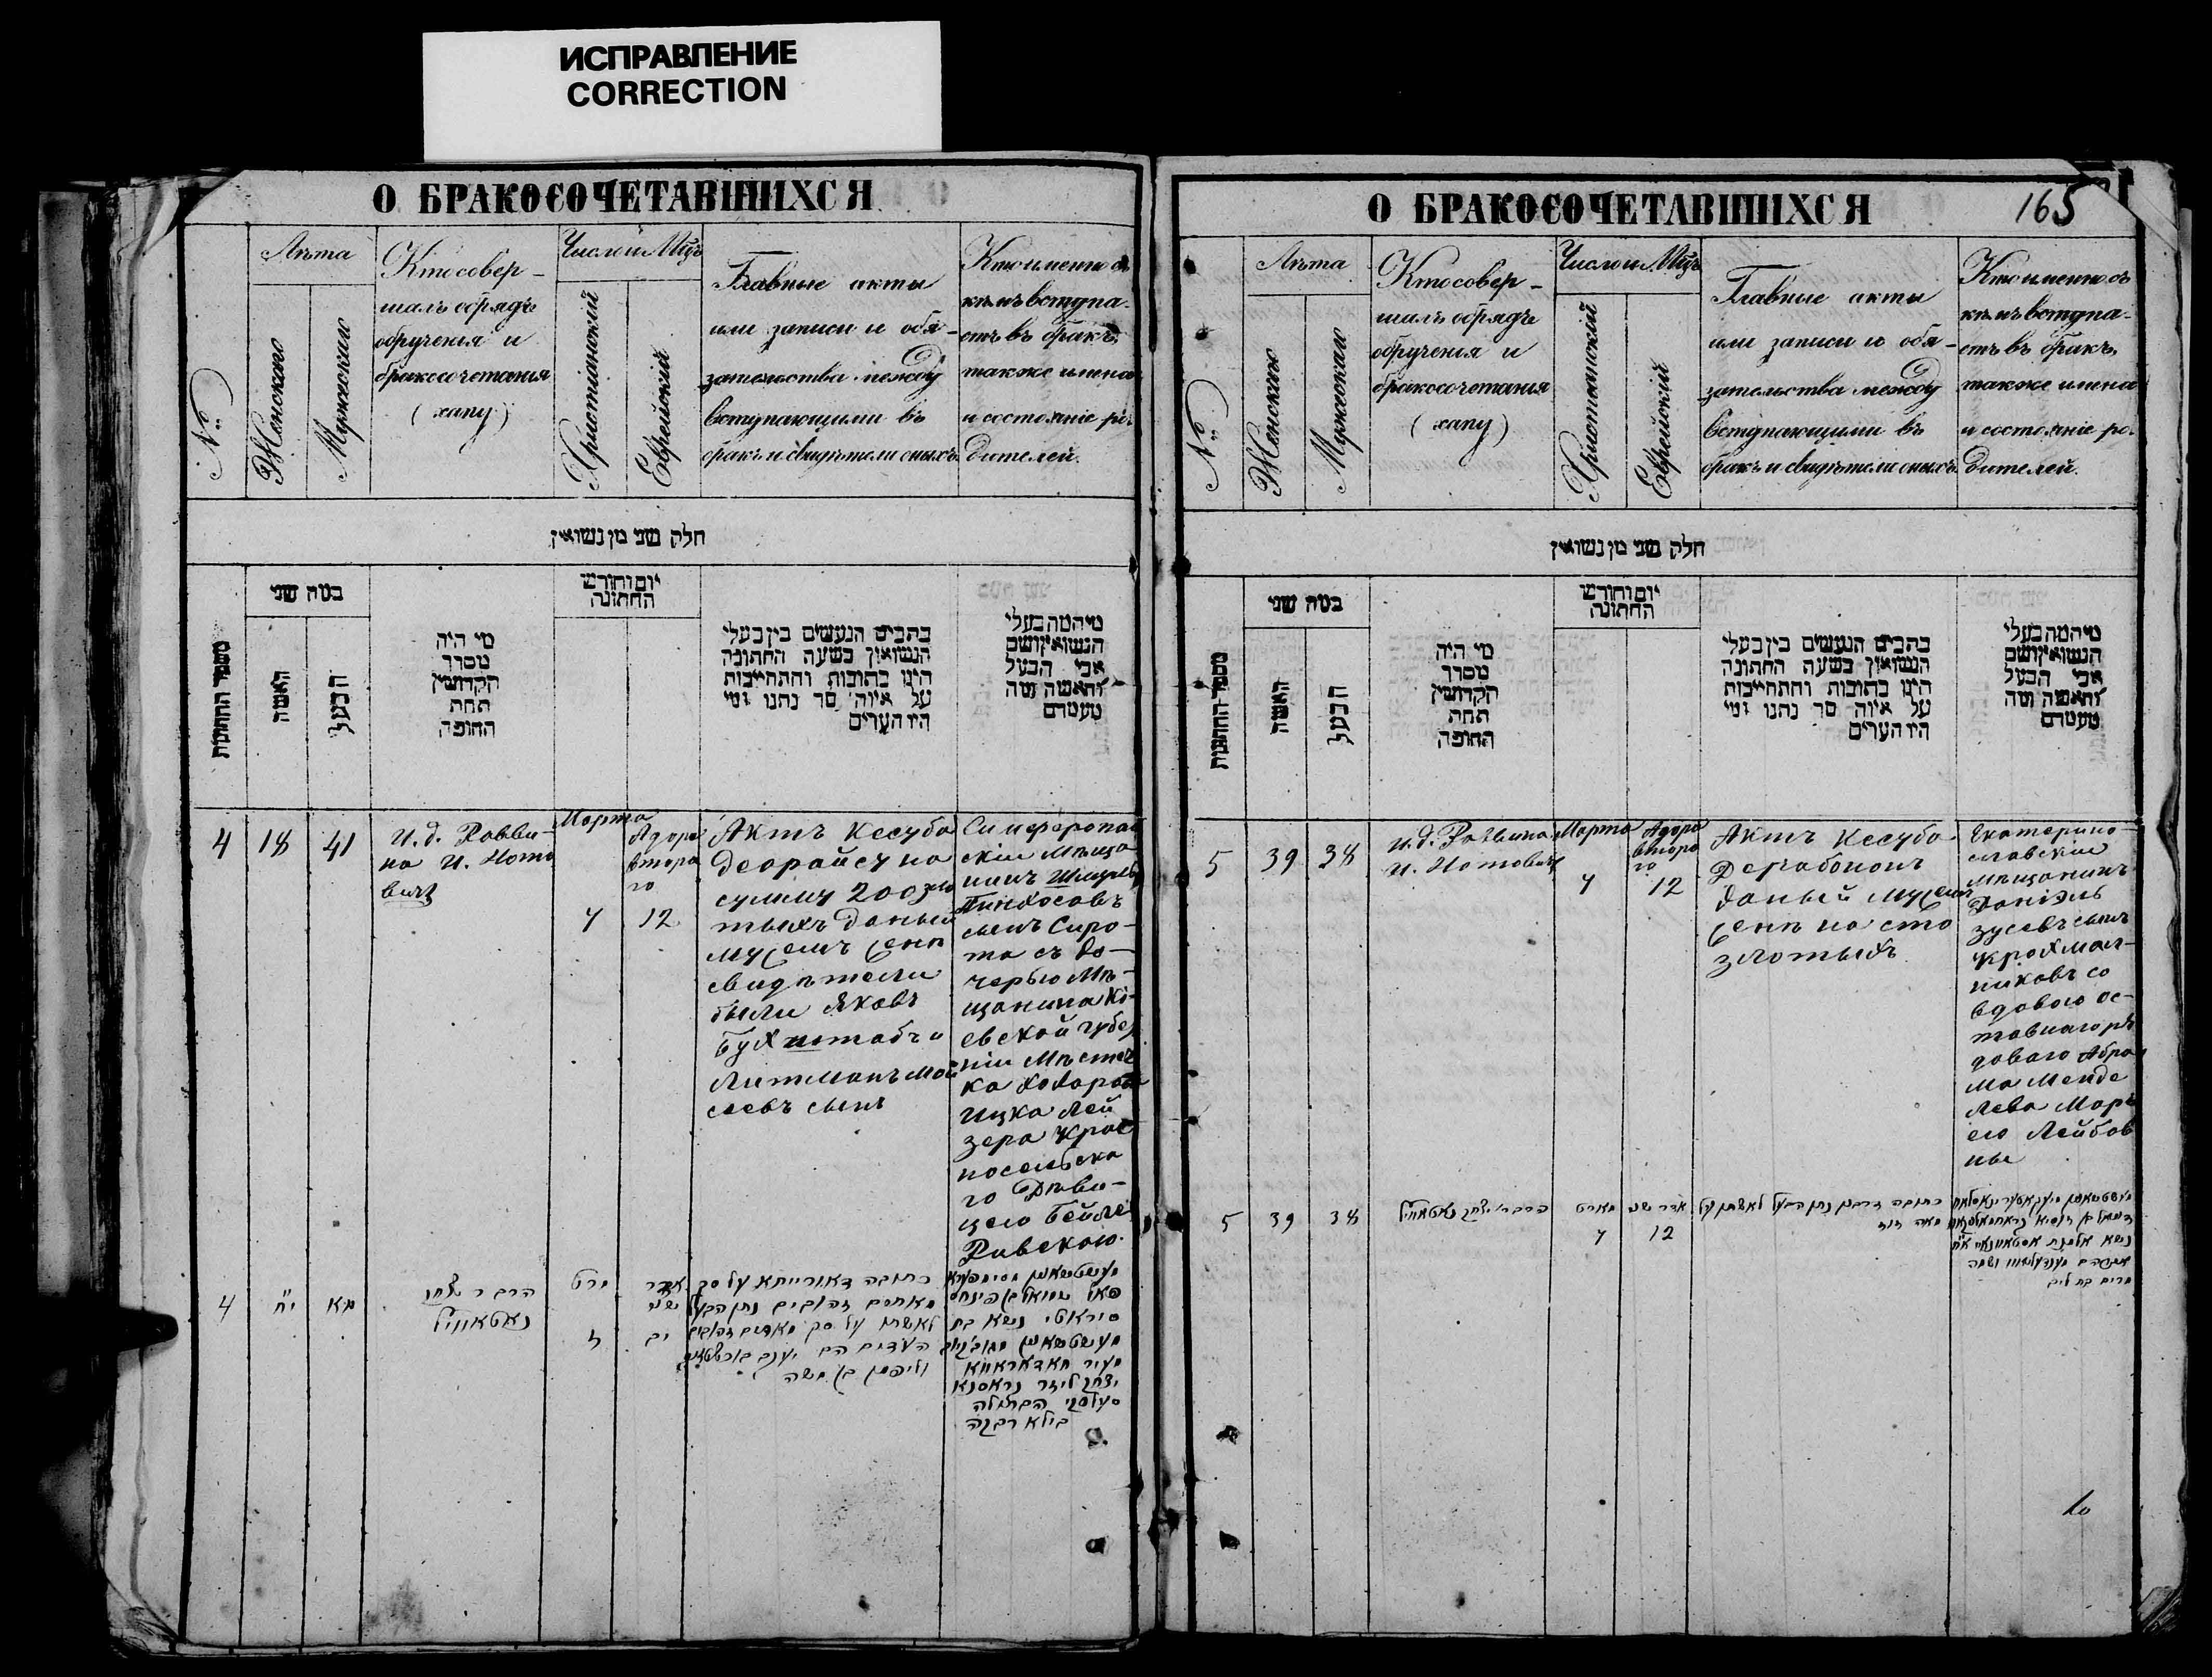 ИСПРАВЛЕНИЕ
CORRECTION
О БРАКОСОЧЕТАВШИХСЯ
№
Лѣта
Женского
Мужескаго
Кто совер-
шалъ обрядъ
обрученія и
бракосочетанія
(хапу)
Число и Мцъ
Христіанскій
Еврейскій
Главные акты
или записи и обя-
зательства между
вступающими въ
бракъ и свидѣтели оныхъ
Кто именно съ
кѣмъ вступа-
етъ въ бракъ,
также имена
и состояніе ро-
дителей.
חלק שני מן נשואין
מספר החתונות
במה שני
האשה
הבעל
מי היה
מסדר
הקדושין
תחת
החופה
יום וחודש
החתונה
כתבים הנעשים בין בעלי
הנשואין בשעה החתונה
היינו כתובות והתחייבות
על איזה סך נתנו ומי
היו העדים
מי המה בעלי
הנשואין ושם
אבי הבעל
והאשה ומה
מעמדם
4
18
41
И. д. Равви-
на И. Ното
вичъ
Марта
7
Адара
втора
го
12
Актъ кесуба
деорайсу на
сумму 200 зло
тыхъ даный
свидѣтели
были Яковъ
Бухштабъ и
Литманъ Мой
сеевъ сынъ
Симферополь
скій мѣща
нинъ Шмуль
Пинхосовъ
сынъ Сиро-
та съ до-
черью мѣ-
щанина Кі-
евской губер
ніи мѣстеч
ка Ходорова
Ицка Лей
зера Крас
носельска
го дѣви-
цею Бейле
Ривскою.
4
י״ח
מא
הרב ר יצחק
נאטאוויץ
מרט
ז
אדר
שני
יב
כתובה דאורייתא על סך
מאתים זהובים נתן הבעל
לאשתו על סך מאתים זהובים
העדים הם יעקב בוכשטאב
וליפמן בן משה
О БРАКОСОЧЕТАВШИХСЯ
165
№
Лѣта
Женского
Мужескаго
Кто совер-
шалъ обрядъ
обрученія и
бракосочетанія
(хапу)
Число и Мцъ
Христіанскій
Еврейскій
Главные акты
или записи и обя-
зательства между
вступающими въ
бракъ и свидѣтели оныхъ
Кто именно съ
кѣмъ вступа-
етъ въ бракъ,
также имена
и состояніе ро-
дителей.
חלק שני מן נשואין
מספר החתונות
במה שני
האשה
הבעל
מי היה
מסדר
הקדושין
תחת
החופה
יום וחודש
החתונה
כתבים הנעשים בין בעלי
הנשואין בשעה החתונה
היינו כתובות והתחייבות
על איזה סך נתנו ומי
היו העדים
מי המה בעלי
הנשואין ושם
אבי הבעל
והאשה ומה
מעמדם
5
39
38
И. д. Раввина
И. Нотовичъ
Марта
7
Адара
второ
го
12
Актъ кесуба
дерабонон
даный
на сто
злотыхъ
Екатерино-
славскій
мѣщанинъ
Даніэль
Зусевъ сынъ
Крохмал-
никовъ со
вдовою от-
ставнаго ря
доваго Абра
ма Менде
лева Марь
ею Лейбов
ны
5
39
38
הרב ר׳ יצחק נאטאוויץ
מארט
7
אדר שני
12
כתובה דרבנן נתן הבעל לאשתו על
מאה זוז
מרים בת ליב